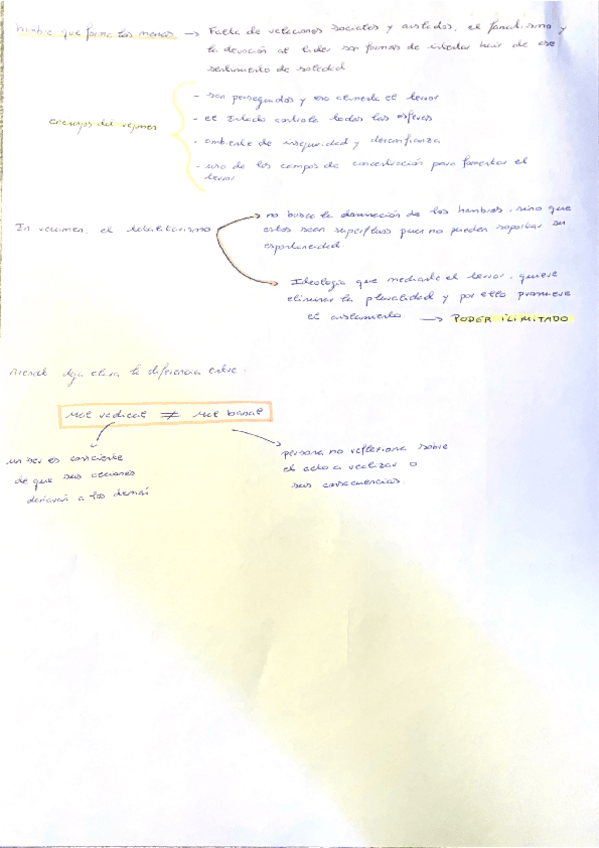 hombre que forma las masas → Falta de relaciones sociales y aislados, el fanatismo y
la devoción al líder son formas de intentar huir de ese
sentimiento de soledad
enemigos del régimen
- son perseguidos y eso aumenta el terror
- el Estado controla todas las esferas
- ambiente de inseguridad y desconfianza
- uso de los campos de concentración para fomentar el
terror.
In resumen, el totalitarismo
no busca la dominación de los hombres, sino que
estos sean superfluos pues no pueden soportar su
espontaneidad.
Ideología que mediante el terror, quiere
eliminar la pluralidad y por ello promueve
el aislamiento → PODER ILIMITADO
deja clara la diferencia entre.
Mal radical ≠ Mal banal
un ser es consciente
de que sus acciones
a los demás
persona no reflexiona sobre
el acto a realizar o
sus consecuencias.